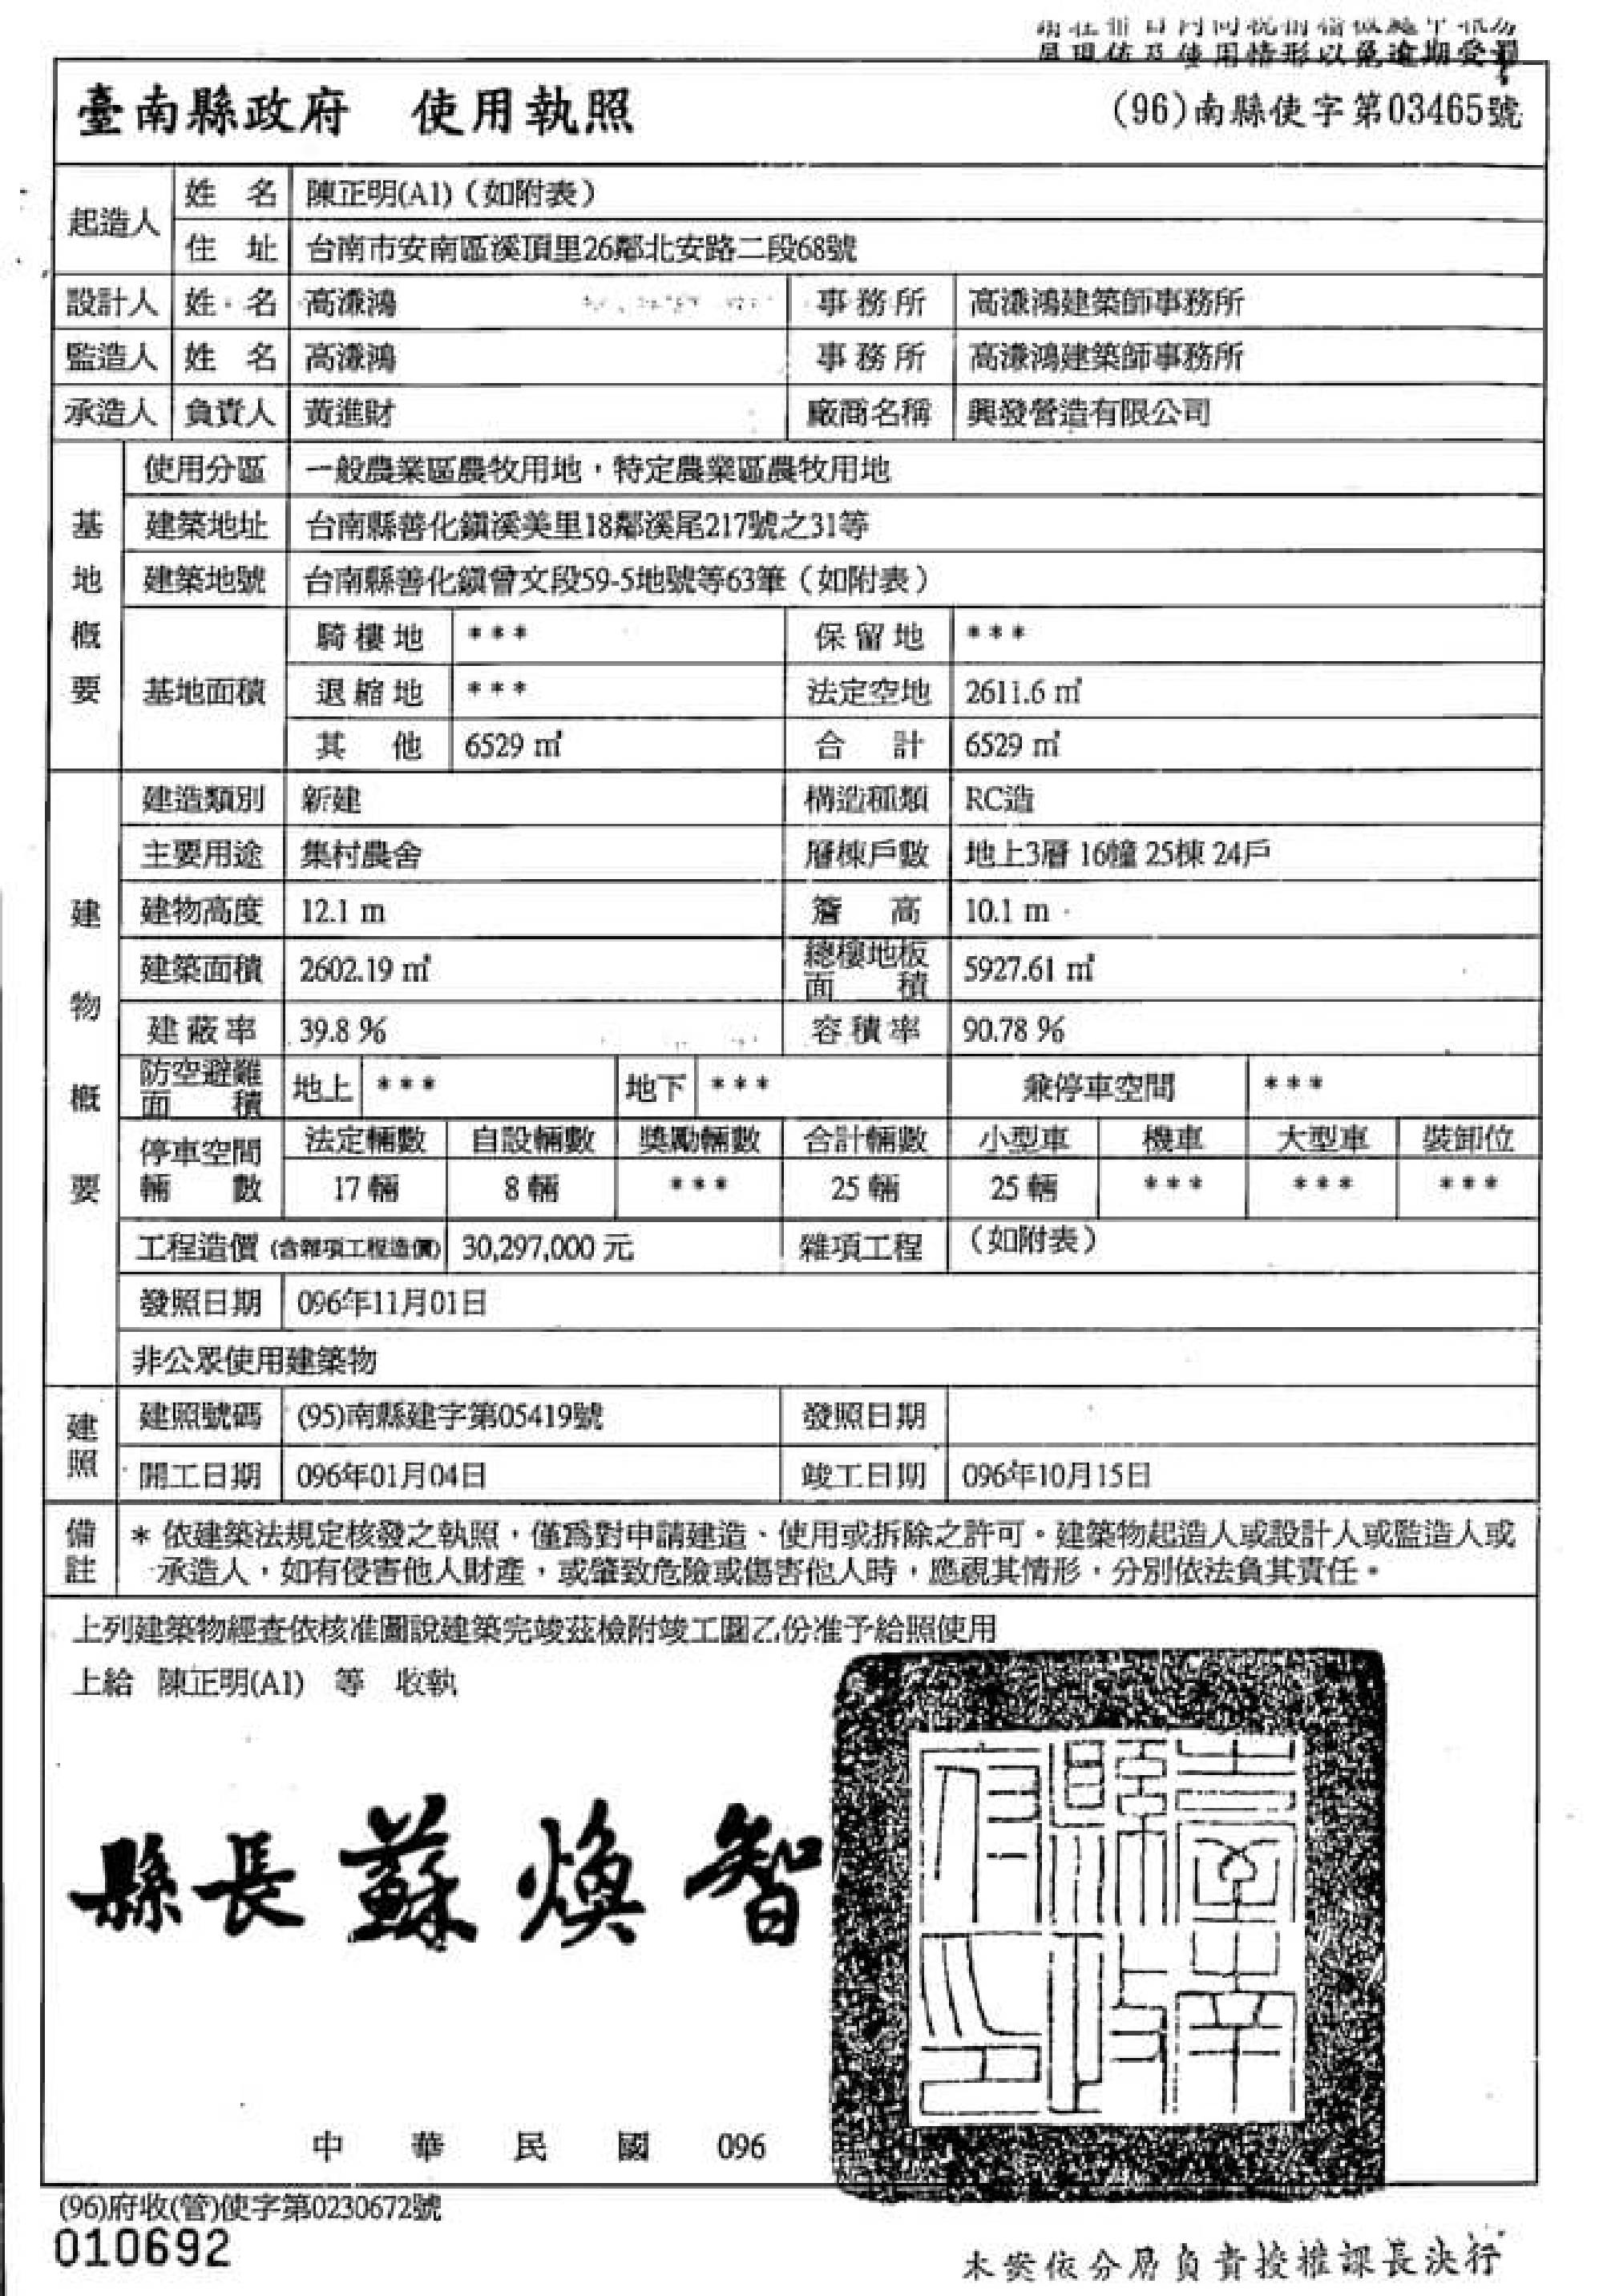 臺南縣政府 使用執照 (96)南縣使字第03465號
起造人 姓名 陳正明(A1)（如附表）
住址 台南市安南區溪頂里26鄰北安路二段68號
設計人 姓名 高溓鴻 事務所 高溓鴻建築師事務所
監造人 姓名 高溓鴻 事務所 高溓鴻建築師事務所
承造人 負責人 黃進財 廠商名稱 興發營造有限公司
基地概要
使用分區 一般農業區農牧用地，特定農業區農牧用地
建築地址 台南縣善化鎮溪美里18鄰溪尾217號之31等
建築地號 台南縣善化鎮曾文段59-5地號等63筆（如附表）
基地面積 騎樓地 *** 保留地 ***
退縮地 *** 法定空地 2611.6 ㎡
其他 6529 ㎡ 合計 6529 ㎡
建物概要
建造類別 新建 構造種類 RC造
主要用途 集村農舍 層棟戶數 地上3層 16幢 25棟 24戶
建物高度 12.1 m 簷高 10.1 m
建築面積 2602.19 ㎡ 總樓地板面積 5927.61 ㎡
建蔽率 39.8 % 容積率 90.78 %
防空避難面積 地上 *** 地下 *** 兼停車空間 ***
停車空間輛數 法定輛數 自設輛數 獎勵輛數 合計輛數 小型車 機車 大型車 裝卸位
17 輛 8 輛 *** 25 輛 25 輛 *** *** ***
工程造價 (含雜項工程造價) 30,297,000 元 雜項工程 （如附表）
發照日期 096年11月01日
非公眾使用建築物
建照
建照號碼 (95)南縣建字第05419號 發照日期
開工日期 096年01月04日 竣工日期 096年10月15日
備註 * 依建築法規定核發之執照，僅為對申請建造、使用或拆除之許可。建築物起造人或設計人或監造人或
承造人，如有侵害他人財產，或肇致危險或傷害他人時，應視其情形，分別依法負其責任。
上列建築物經查依核准圖說建築完竣茲檢附竣工圖乙份准予給照使用
上給 陳正明(A1) 等 收執
縣長 蘇煥智
臺南縣政府印
中華民國 096
(96)府收(管)使字第0230672號
010692
本案依分層負責授權課長決行